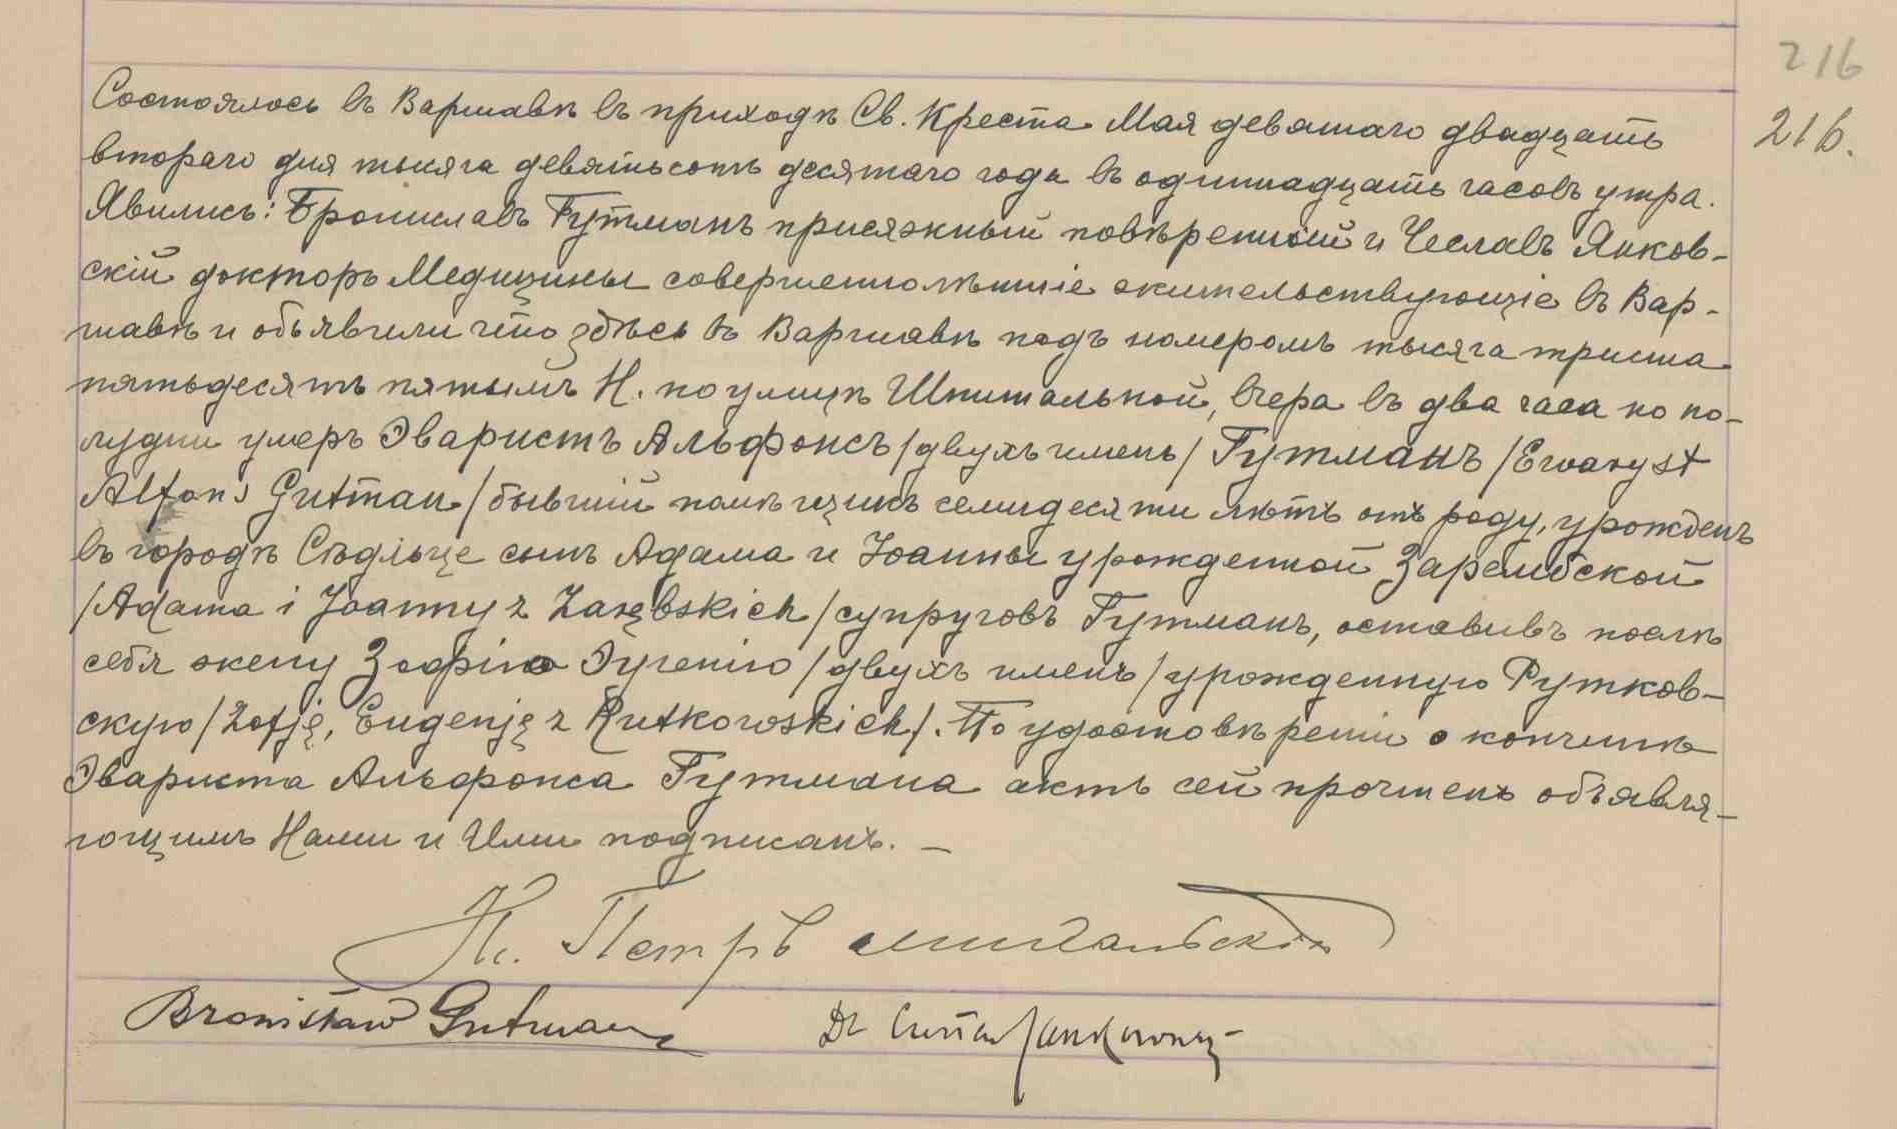 216
216.
Состоялось въ Варшавѣ въ приходѣ Св. Креста Мая девятаго двадцать
втораго дня тысяча девятьсотъ десятаго года въ одиннадцать часовъ утра.
Явились: Брониславъ Гутманъ присяжный повѣренный и Чеславъ Янков-
скій докторъ Медицины совершеннолѣтніе жительствующіе въ Вар-
шавѣ и объявили что здѣсь въ Варшавѣ подъ номеромъ тысяча триста
пятьдесятъ пятымъ Н. по улицѣ Шпитальной, вчера въ два часа по по-
лудни умеръ Эваристъ Альфонсъ /двухъ именъ/ Гутманъ /Ewaryst
Alfons Gutman/ бывшій помѣщикъ семидесяти лѣтъ отъ роду, урожденъ
въ городѣ Сѣдльце сынъ Адама и Іоанны урожденной Зарембской
/Adama i Joanny z Zarębskich/ супруговъ Гутманъ, оставивъ послѣ
себя жену Зофію Эугенію /двухъ именъ/ урожденную Рутков-
скую /Zofję, Eugenję z Rutkowskich/. По удостовѣреніи о кончинѣ
Эвариста Альфонса Гутмана актъ сей прочтенъ объявля-
ющимъ Нами и Ими подписанъ. —
Кс. Петръ
Bronisław Gutman
Dr Jankowski